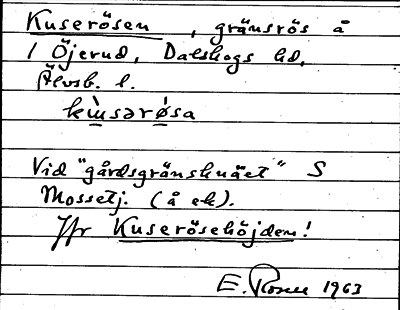 Kuserösen, gränsrös å
1 Öjerud, Dalskogs hd,
Älvsb. l.
kɯ̀sərǿsa
Vid "gårdsgränsknäet" S
Mossetj. (å ek).
Jfr Kuserösehöjden!
E. Rosell 1963